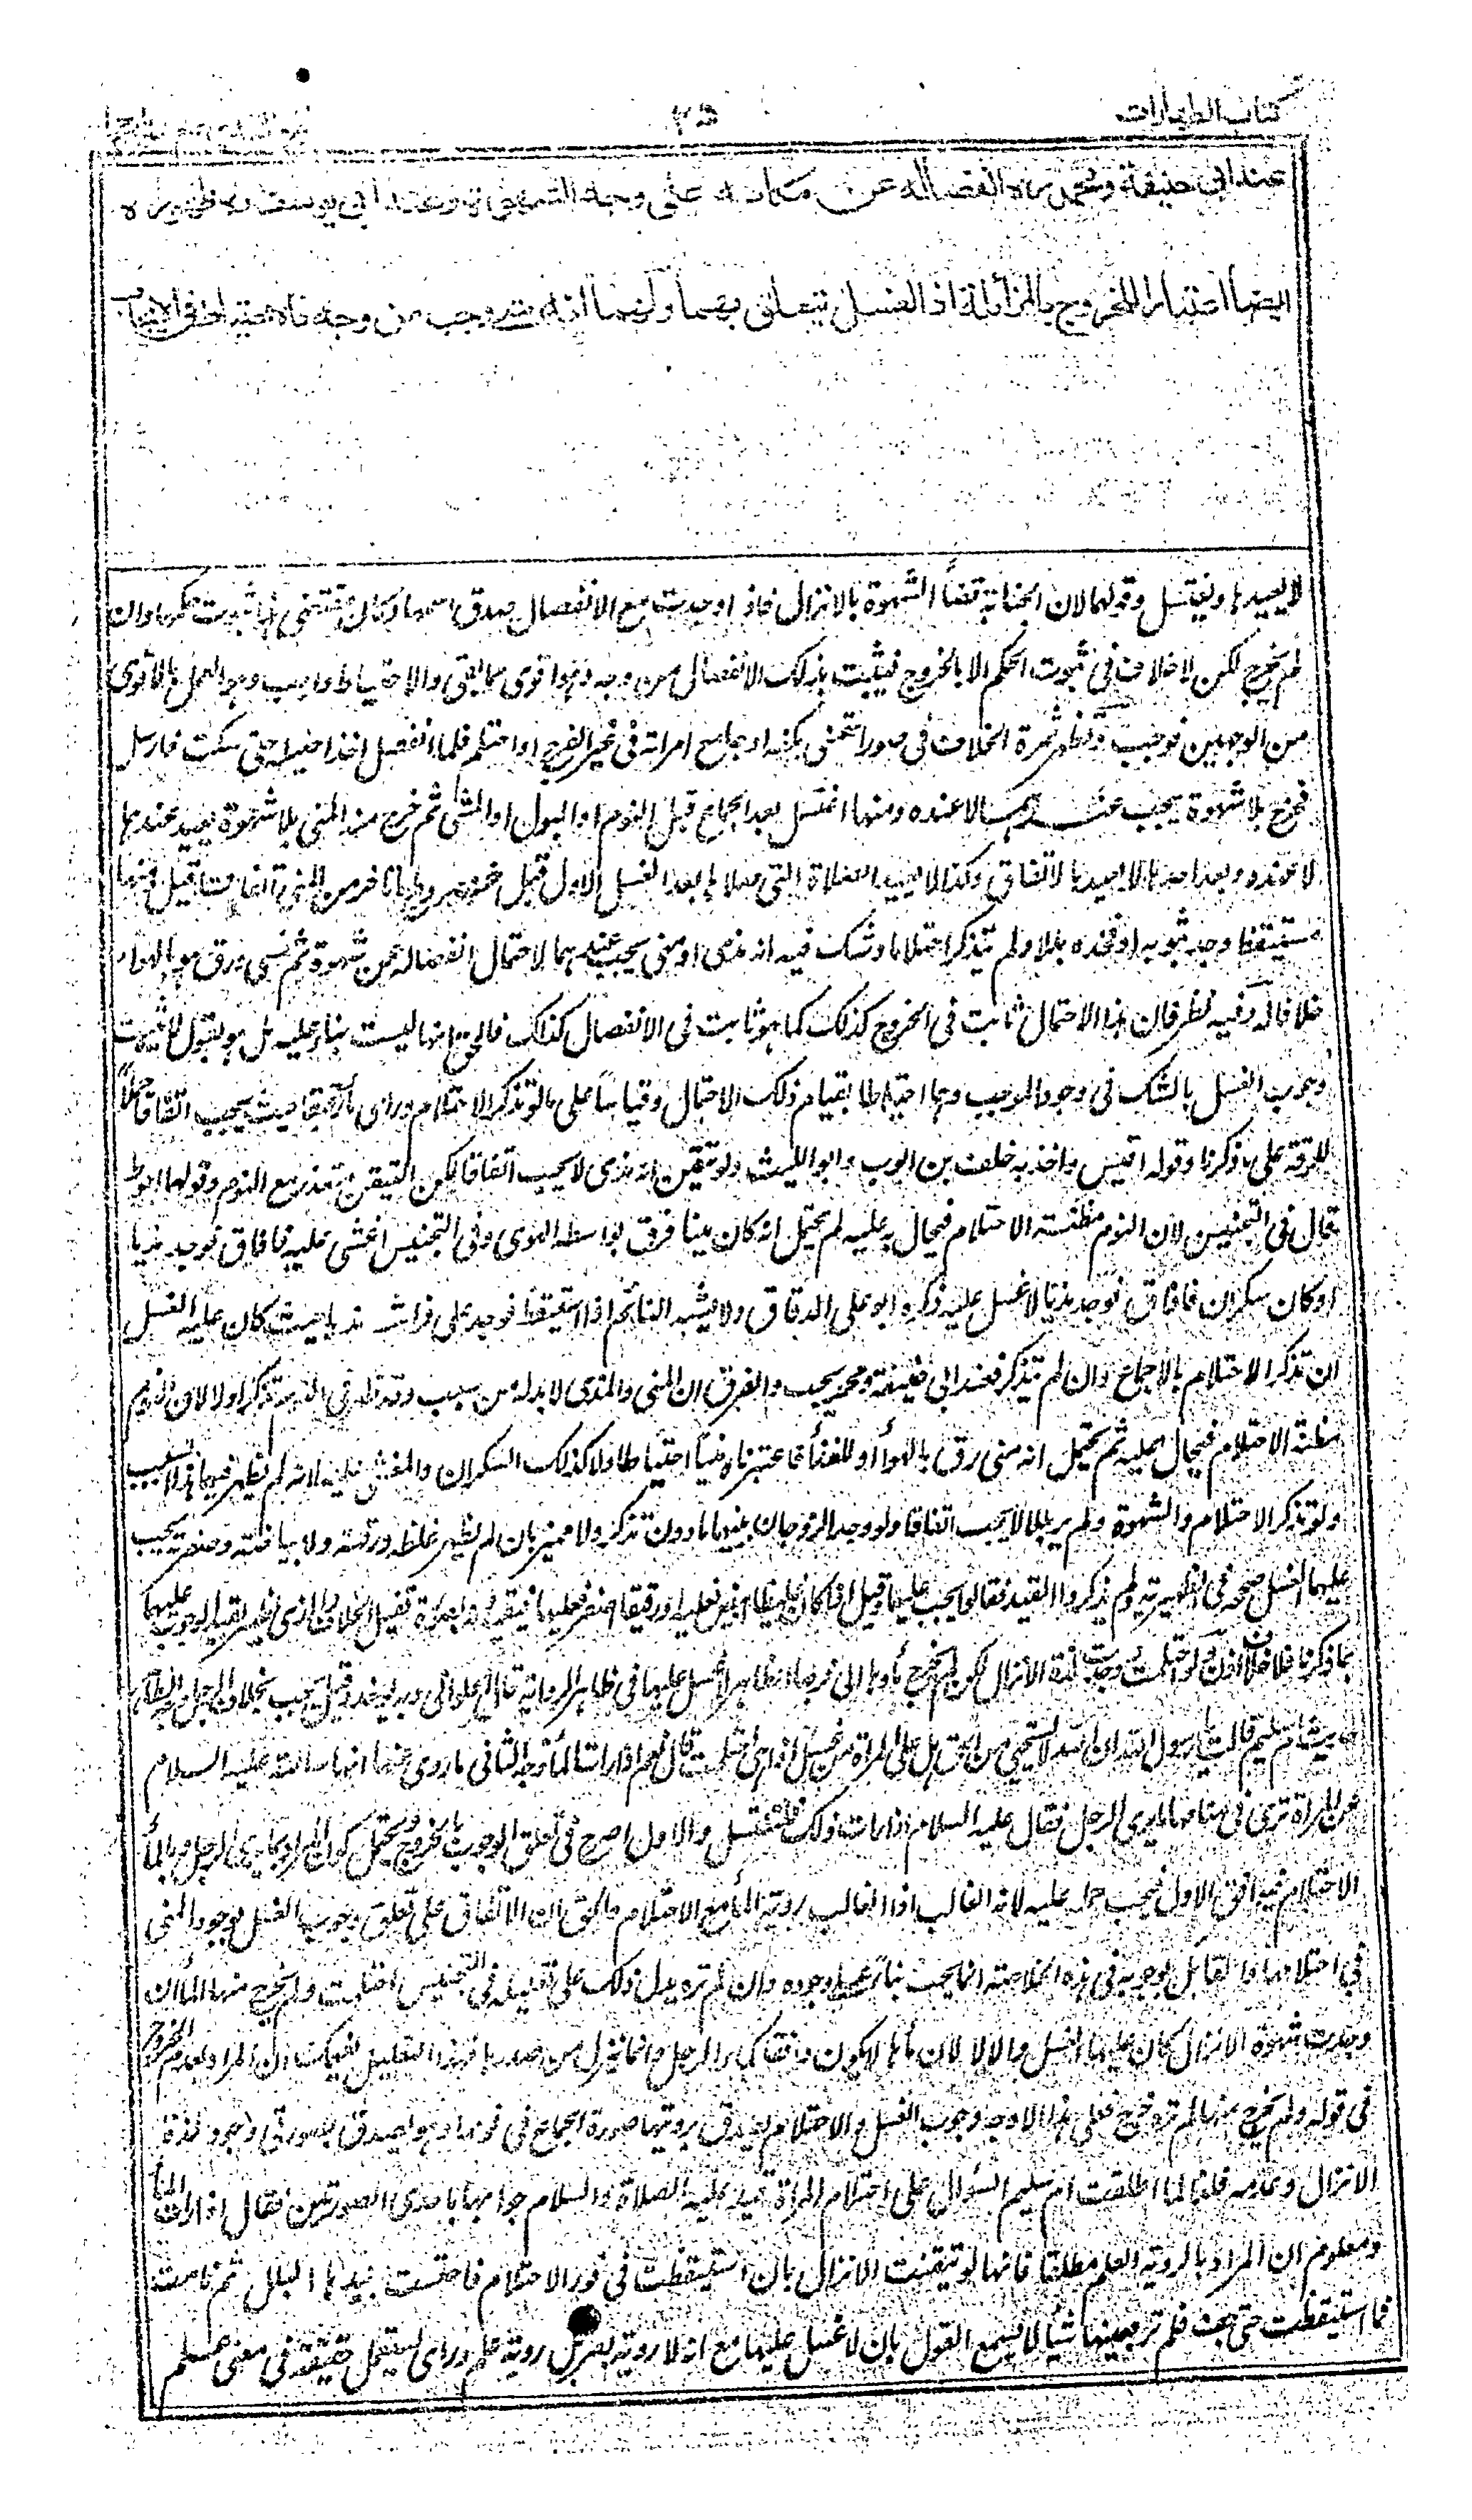 كتاب الطهارات
٢٥
عند ابي حنيفة ومحمد انفصاله عن مكانه على وجه الشهوة وعند ابي يوسف ظهوره
ايضا اعتبارا للخروج بالمزائلة اذ الغسل يتعلق بهما ولهما انه متى وجب من وجه فالاحتياط في الايجاب
لا يعيدها ويغتسل وقولهما لان الجنابة قضاء الشهوة بالانزال فاذا وجدت مع الانفصال صدق اسمها وكان مقتضى ثبوت حكمها وان
لم يخرج لكن لا خلاف في ثبوت الحكم الا بالخروج فيثبت بذلك الانفصال من وجه وهو اقوى مما بقي والاحتياط واجب وهو العمل بالاقوى
من الوجهين فوجب وتظهر ثمرة الخلاف في صور استمنى بكفه او جامع امراته في غير الفرج او احتلم فلما انفصل اخذ احليله حتى سكنت فارسل
فخرج بلا شهوة يجب عندهما لا عنده ومنها اغتسل بعد الجماع قبل النوم او البول او المشي ثم خرج منه المني بلا شهوة يعيد عندهما
لا عنده وبعد احدها لا يعيد بالاتفاق وكذا لا يعيد الصلاة التي صلاها بعد الغسل الاول قبل خروج ما تاخر من المني اتفاقا
مستيقظ وجد بثوبه او فخذه بللا ولم يتذكر احتلاما وشك فيه انه مذي او مني يجب عندهما لاحتمال انفصاله عن شهوة ثم نسي ورق هو بالهواء
خلافا له وفيه نظر فان هذا الاحتمال ثابت في الخروج كذلك كما هو ثابت في الانفصال كذلك فالحق انها ليست بناء عليه بل هو يقول لا يثبت
وجوب الغسل بالشك في وجود الموجب وهما احتاطا لقيام ذلك الاحتمال وقياسا على ما لو تذكر الاحتلام وراى ماء رقيقا حيث يجب اتفاقا حملا
للرقة على ما ذكرنا وقوله اقيس واخذ به خلف بن ايوب وابو الليث ولو تيقن انه مذي لا يجب اتفاقا لكن التيقن متعذر مع النوم وقولهما احوط
قال في التجنيس لان النوم مظنة الاحتلام فيحال به عليه لم يحتمل انه كان منيا فرق بواسطة الهوى وفي التجنيس اغشي عليه فافاق فوجد مذيا
او كان سكران فافاق فوجد مذيا لا غسل عليه ذكره ابو علي الدقاق ولا يشبه النائم اذا استيقظ فوجد على فراشه مذيا حيث كان عليه الغسل
ان تذكر الاحتلام بالاجماع وان لم يتذكر فعند ابي حنيفة ومحمد يجب والفرق ان المني والمذي لا بد له من سبب وقد ظهر في النوم تذكر اولا لان النوم
مظنة الاحتلام فيحال عليه ثم يحتمل انه مني رق بالهواء او للغذاء فاعتبرناه منيا احتياطا ولا كذلك السكران والمغشي عليه لانه لم يظهر فيهما هذا السبب
ولو تذكر الاحتلام والشهوة ولم ير بللا لا يجب اتفاقا ولو وجد الزوجان بينهما ماء دون تذكر ولا مميز بان لم يظهر غلظه ورقته ولا بياضه وصفرته يجب
عليهما الغسل صححه في الظهيرية ولم يذكروا القيد فقالوا يجب عليهما وقيل اذا كان غليظا ابيض فعليه او رقيقا اصفر فعليها
بما ذكرنا فلا خلاف اذن ولو احتلمت ووجدت لذة الانزال لكن لم يخرج ماؤها الى فرجها الظاهر لا غسل عليها في ظاهر الرواية
حديث ام سليم قالت يا رسول الله ان الله لا يستحيي من الحق هل على المراة من غسل اذا هي احتلمت قال نعم اذا رات الماء وجه الثاني ما روي عنها انها سالته عليه السلام
عن المراة ترى في منامها ما يرى الرجل فقال عليه السلام اذا رات ذلك فلتغتسل والاول اصرح في تعلق الوجوب بالخروج ويحتمل كون المراد
الاحتلام فيوافق الاول فيجب حمله عليه لانه الغالب اذ الغالب رؤية الماء مع الاحتلام والحق ان الاتفاق على تعلق وجوب الغسل بوجود المني
في احتلامها والقائل بوجوبه في هذه الخلاصة انما يجب بناء على وجوده وان لم تره يدل ذلك على تعليله في التجنيس احتلمت ولم يخرج منها الماء ان
وجدت شهوة الانزال كان عليها الغسل والا لا لان ماءها لا يكون دافقا كماء الرجل وانما ينزل من صدرها فهذا التعليل يفهمك ان المراد بعدم الخروج
في قوله ولم يخرج منها لم تره خرج فعلى هذا الاوجه وجوب الغسل والاحتلام يصدق برؤيتها صورة الجماع في نومها وهو يصدق بصورتي وجود لذة
الانزال وعدمه فلذا لما اطلقت ام سليم السؤال على احتلام المراة قيد عليه الصلاة والسلام جوابها باحدى الصورتين فقال اذا رات الماء
ومعلوم ان المراد بالرؤية العلم مطلقا فانها لو تيقنت الانزال بان استيقظت في فور الاحتلام فاحست بيدها البلل ثم نامت
فما استيقظت حتى جف فلم تر بعينها شيئا لا يسمع القول بان لا غسل عليها مع انه لا رؤية بصر بل رؤية علم وراى يستعمل حقيقة في معنى علم